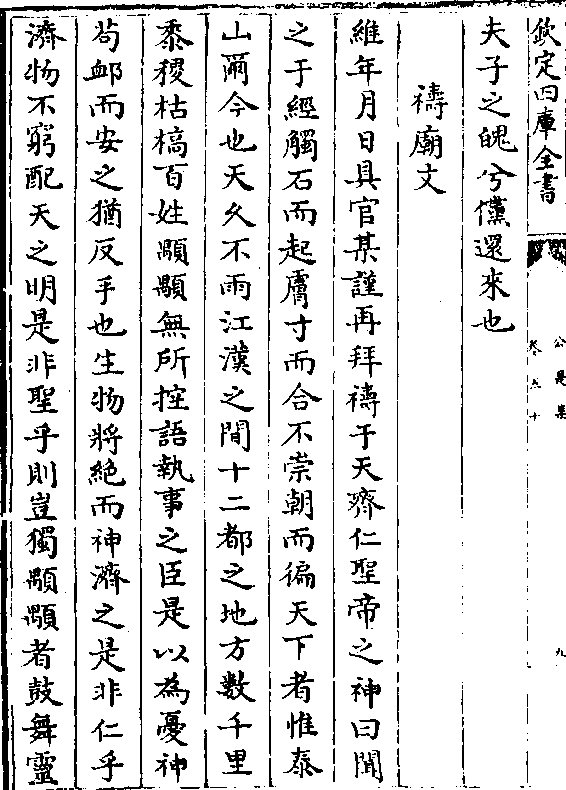 欽定四庫全書
公是集
卷五十
九
夫子之魄兮儻還來也
禱廟文
維年月日具官某謹再拜禱于天齊仁聖帝之神曰聞
之于經觸石而起膚寸而合不崇朝而徧天下者惟泰
山爾今也天久不雨江漢之間十二都之地方數千里
黍稷枯槁百姓顒顒無所控語執事之臣是以為憂神
茍䘏而安之猶反手也生物將絶而神濟之是非仁乎
濟物不窮配天之明是非聖乎則豈獨顒顒者鼓舞靈